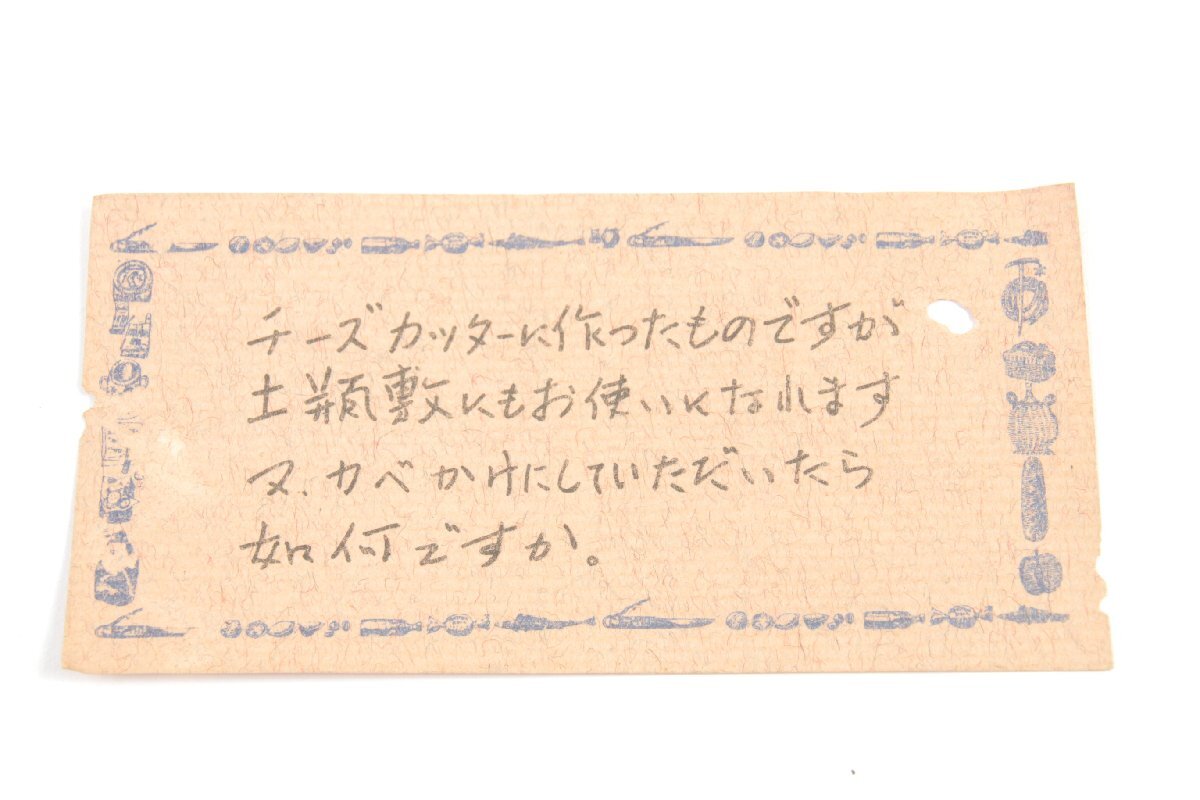 チーズカッターに作ったものですが
土瓶敷にもお使いになれます
又、カベかけにしていただいたら
如何ですか。